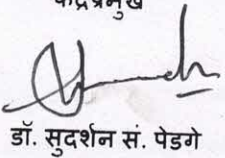 केंद्रप्रमुख
डॉ. सुदर्शन सं. पेडगे